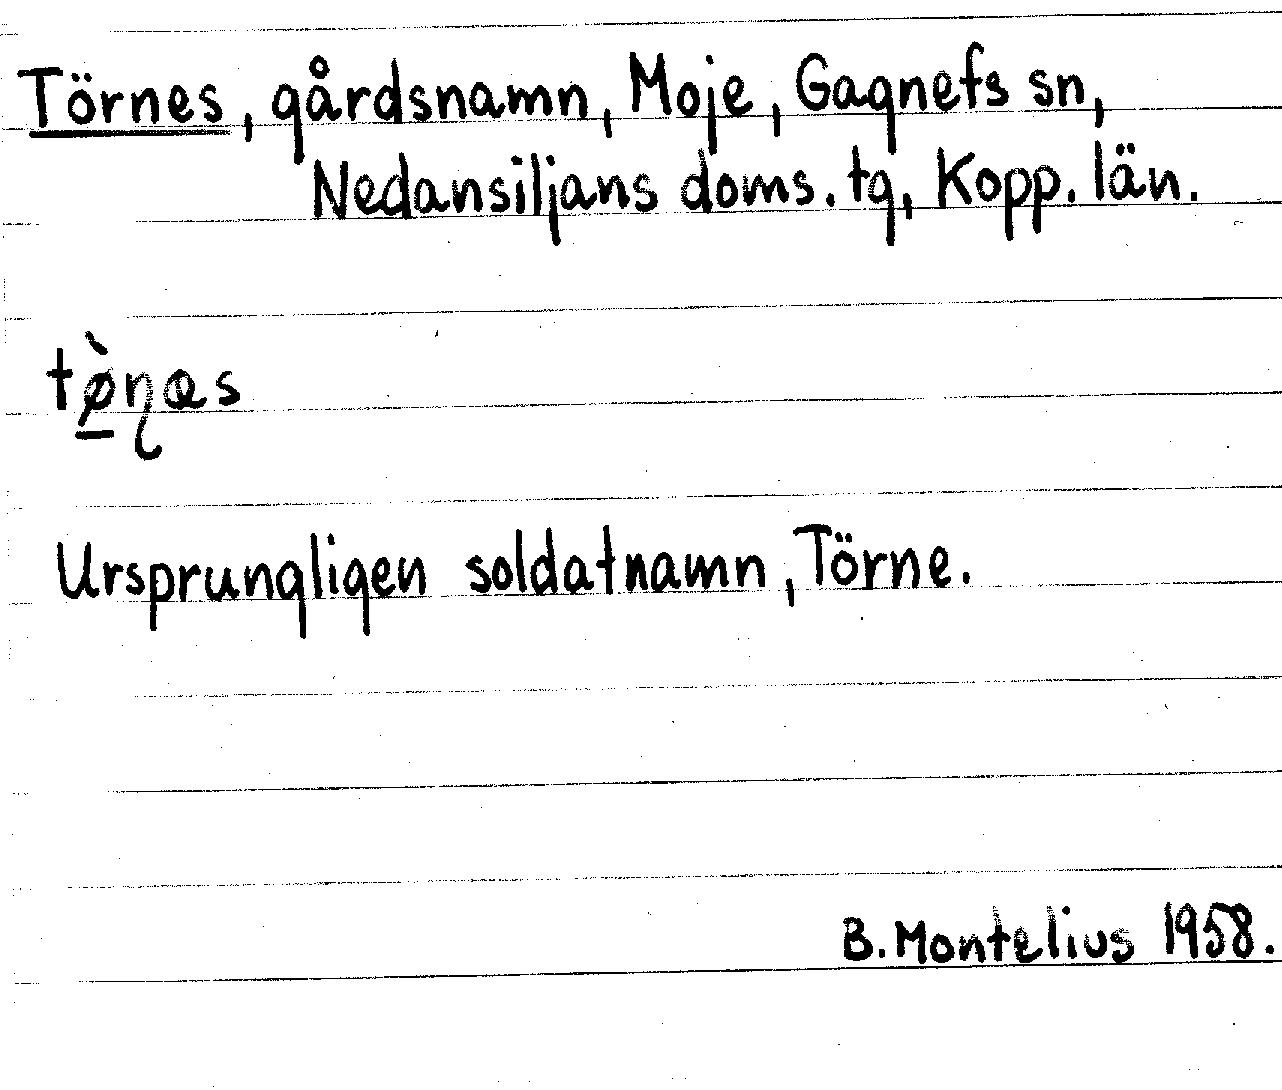 Törnes, gårdsnamn, Moje, Gagnefs sn,
Nedansiljans doms. tg, Kopp. län.
tø̠̀ɳas
Ursprungligen soldatnamn, Törne.
B. Montelius 1958.